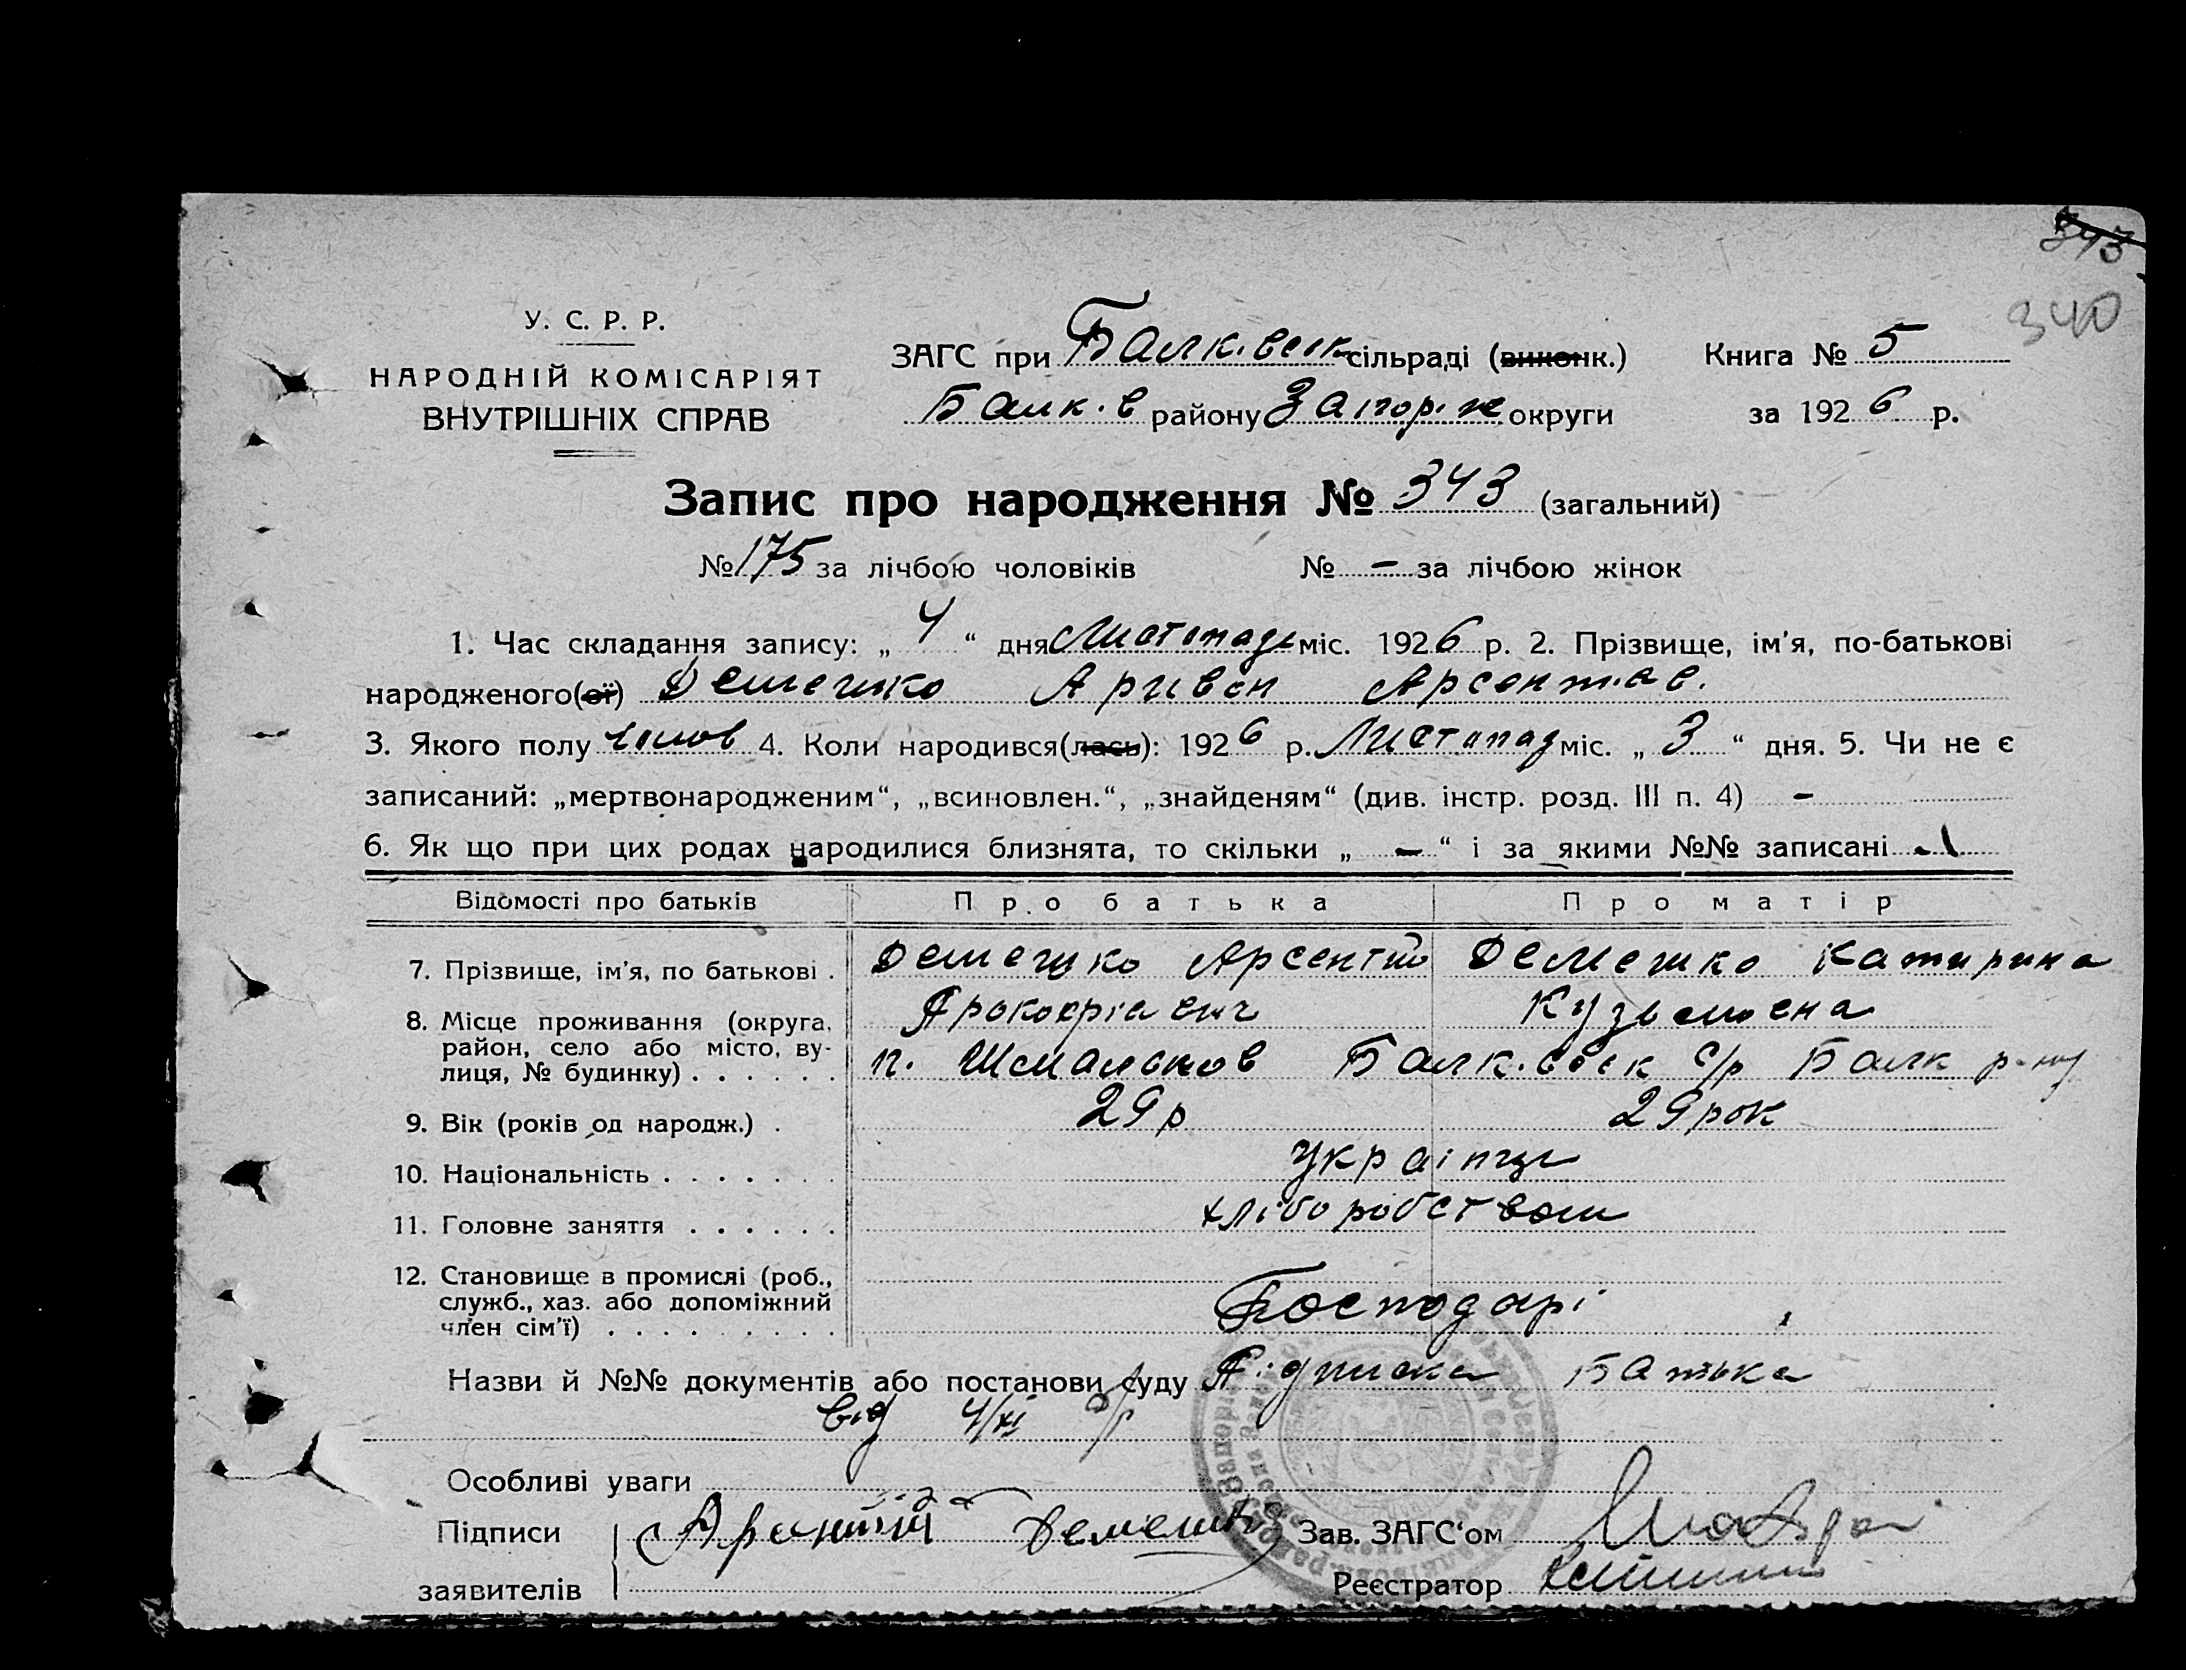 343
340
У. С. Р. Р.
НАРОДНІЙ КОМІСАРІЯТ
ВНУТРІШНІХ СПРАВ
ЗАГС при Балківськ сільраді (виконк.) Книга № 5
Балк-в району Запоріж округи за 1926 р.
Запис про народження № 343 (загальний)
№ 175 за лічбою чоловіків № – за лічбою жінок
1. Час складання запису: „ 4 “ дня Листопада міс. 1926 р. 2. Прізвище, ім'я, по-батькові
народженого(ої) Демешко Арсент.
3. Якого полу чолов 4. Коли народився(лась): 1926 р. Листопад міс. „ 3 “ дня. 5. Чи не є
записаний: „мертвонародженим“, „всиновлен.“, „знайденям“ (див. інстр. розд. III п. 4) –
6. Як що при цих родах народилися близнята, то скільки „ – “ і за якими №№ записані -
Відомості про батьків Про батька Про матір
7. Прізвище, ім'я, по батькові . Демешко Арсентий Демешко Катирина
Прокофіевич Кузьмовна
8. Місце проживання (округа, район, село або місто, вулиця, № будинку) . . . . . . Балк. с/р Балк р-ну
9. Вік (років од народж.) . 29 р 29 рок
10. Національність . . . . . . . українці
11. Головне заняття . . . . . . хліборобством
12. Становище в промислі (роб., служб., хаз. або допоміжний член сім'ї) . . . . . . . . . Господарі
Назви й №№ документів або постанови суду Підписка Батька
від 4/XI
Особливі уваги
Підписи Арсентій Демешко Зав. ЗАГС‘ом
заявителів Реєстратор